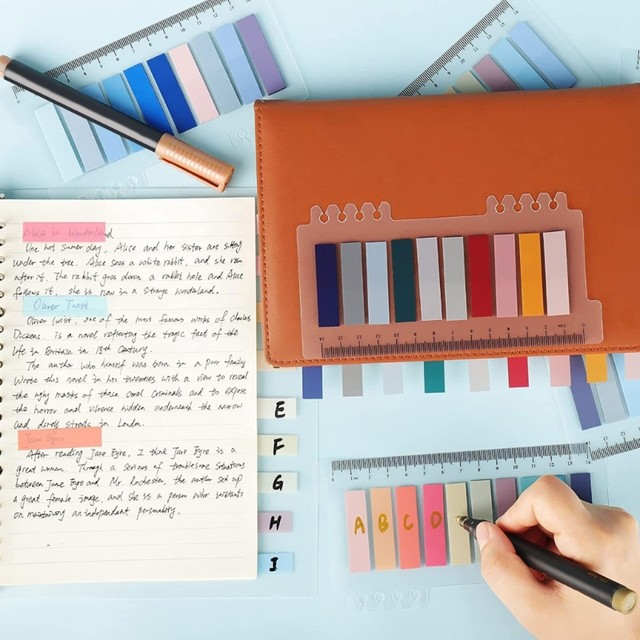 Alice in Wonderland
One hot summer day, Alice and her sister are sitting
under the tree. Alice sees a white rabbit, and she run
after it. The rabbit goes down a rabbit hole and Alice
follows it, she is now in a strange wonderland.
Oliver Twist
Oliver Twist, one of the most famous works of Charles
Dickens, is a novel reflecting the tragic fact of the
life in Britain in 18th Century.
The author who himself was born in a poor family
Wrote this novel in his twenties with a view to reveal
the ugly masks of these cruel criminals and to expose
the horror and violence hidden underneath the narrow
and dirty streets in London.
Jane Eyre
After reading Jane Eyre, I think Jane Eyre is a
great woman. Through a series of troublesome situations
between Jane Eyre and Mr. Rochester, the author set up
a great female image, and she is a person who insists
on maintaining an independent personality.
E
F
G
H
I
A B C D